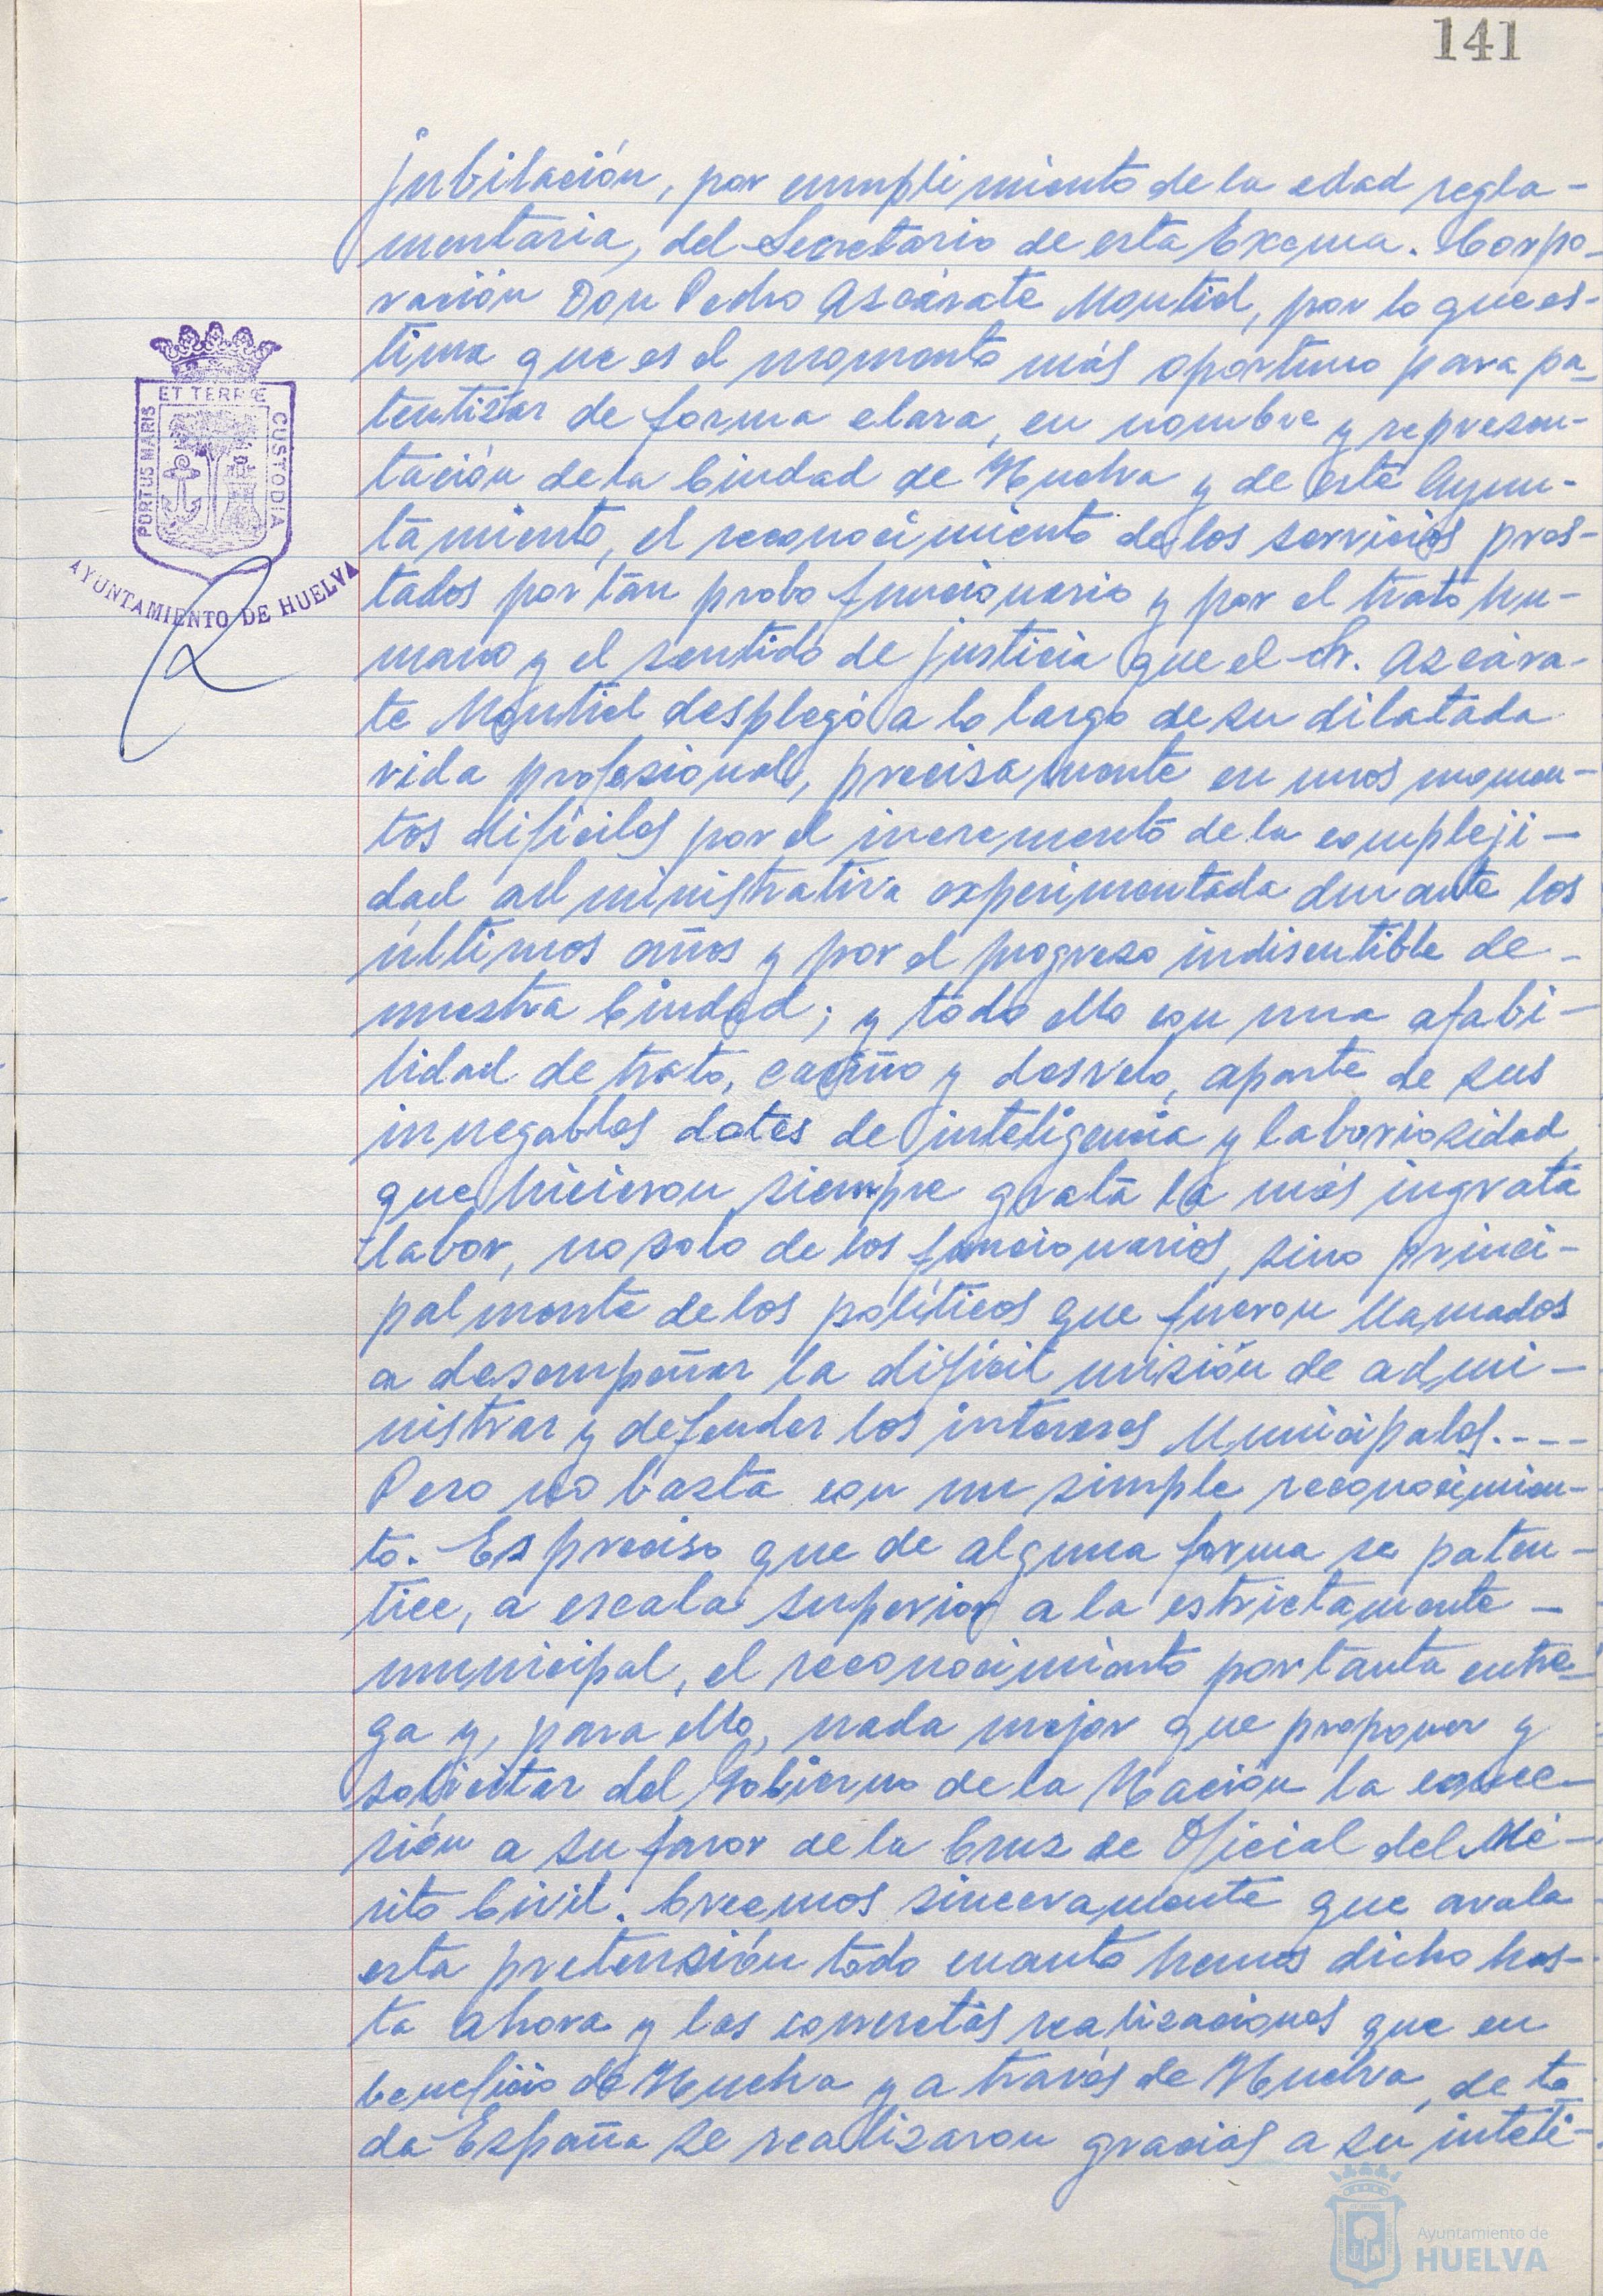 141
jubilación, por cumplimiento de la edad regla-
mentaria, del Secretario de esta Excma. Corpo-
ración Don Pedro Azcárate Montiel, por lo que es-
tima que es el momento más oportuno para pa-
tentizar de forma clara, en nombre y represen-
tación de la Ciudad de Huelva y de este Ayun-
tamiento, el reconocimiento de los servicios pres-
tados por tan probo funcionario y por el trato hu-
mano y el sentido de justicia que el Sr. Azcára-
te Montiel desplegó a lo largo de su dilatada
vida profesional, precisamente en unos momen-
tos difíciles por el incremento de la compleji-
dad administrativa experimentada durante los
últimos años y por el progreso indiscutible de-
nuestra Ciudad; y todo ello con una afabi-
lidad de trato, cariño y desvelo, aparte de sus
innegables dotes de inteligencia y laboriosidad,
que hicieron siempre grata la más ingrata
labor, no solo de los funcionarios, sino princi-
palmente de los políticos que fueron llamados
a desempeñar la difícil misión de admi-
nistrar y defender los intereses Municipales.---
Pero no basta con un simple reconocimien-
to. Es preciso que de alguna forma se paten-
tice, a escala superior a la estrictamente-
municipal, el reconocimiento por tanta entre-
ga y, para ello, nada mejor que proponer y
solicitar del Gobierno de la Nación la conce-
sión a su favor de la Cruz de Oficial del Mé-
rito Civil. Creemos sinceramente que avala
esta pretensión todo cuanto hemos dicho has-
ta ahora y las concretas realizaciones que en
beneficio de Huelva y a través de Huelva, de to-
da España se realizaron gracias a su inteli-
ET TERRÆ
PORTUS MARIS
CUSTODIA
AYUNTAMIENTO DE HUELVA
Ayuntamiento de
HUELVA